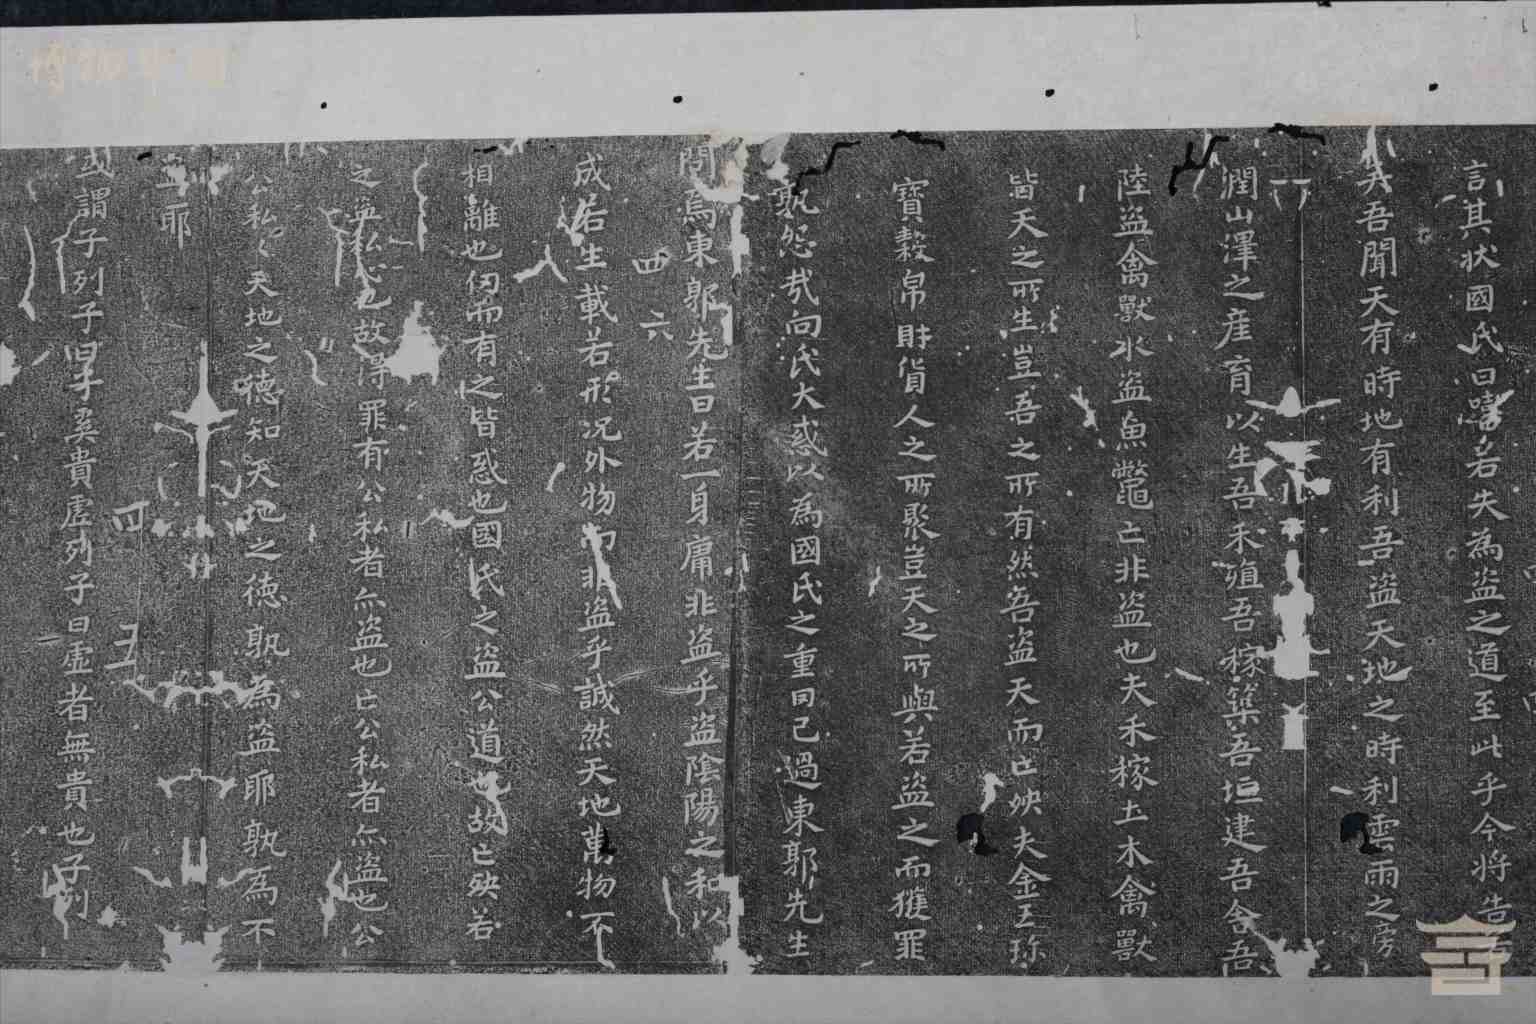 言其状國氏曰嘻若失為盜之道至此乎今將告若
矣吾聞天有時地有利吾盜天地之時利雲雨之滂
潤山澤之産育以生吾禾殖吾稼築吾垣建吾舍吾
陸盜禽獸水盜魚鼈亡非盜也夫禾稼土木禽獸
皆天之所生豈吾之所有然吾盜天而亡殃夫金玉珎
寶穀帛財貨人之所聚豈天之所與若盜之而獲罪
孰怨哉向氏大惑以為國氏之重罔己過東郭先生
問焉東郭先生曰若一身庸非盜乎盜陰陽之和以
四六
成若生載若形况外物而非盜乎誠然天地萬物不
相離也仞而有之皆惑也國氏之盜公道也故亡殃若
之盜私心也故得罪有公私者亦盜也亡公私者亦盜也公
公私く天地之德知天地之德孰為盜耶孰為不
盜耶
四五
或謂子列子曰子奚貴虛列子曰虛者無貴也子列